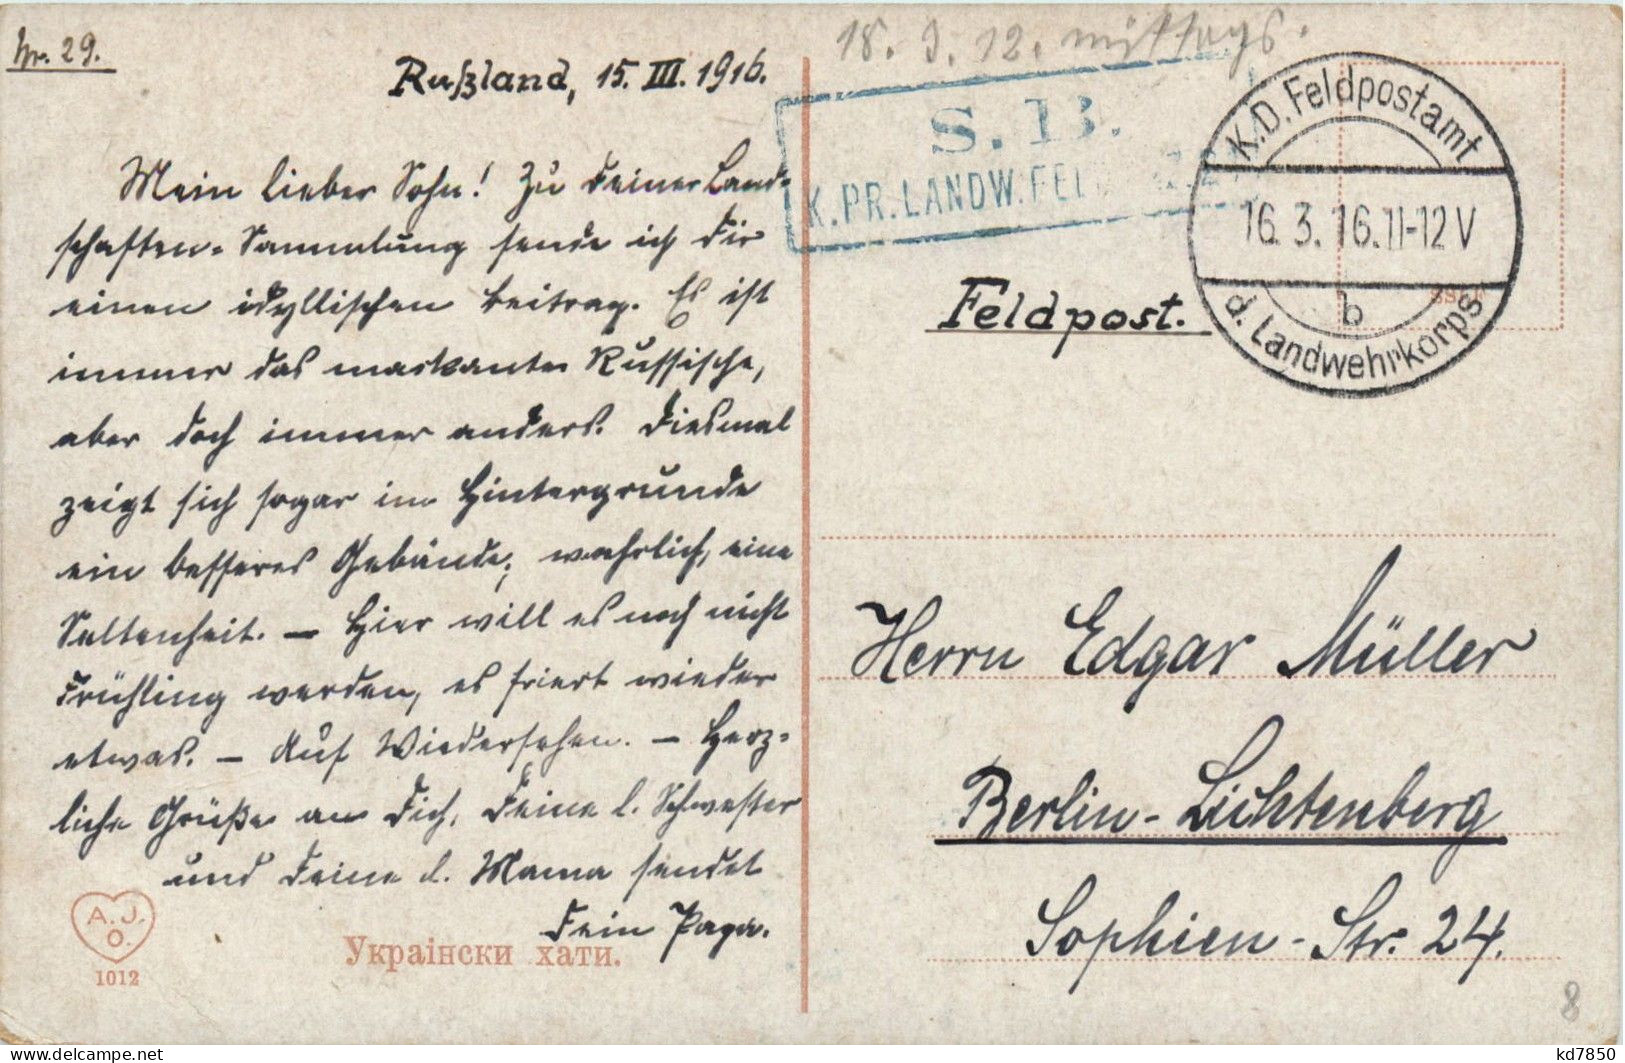 Nr. 29.
Rußland, 15. III. 1916.
Mein lieber Sohn! Zu Deiner Land-
schaften-Sammlung sende ich Dir
einen idyllischen Beitrag. Es ist
immer das markante Russische,
aber doch immer anders. Diesmal
zeigt sich sogar im Hintergrunde
ein besseres Gebäude; wahrlich, eine
Seltenheit. – Hier will es noch nicht
Frühling werden, es friert wieder
etwas. – Auf Wiedersehen. – Herz-
liche Grüße an Dich, Deine l. Schwester
und Deine l. Mama sendet
Dein Papa.
A. J.
O.
1012
Українски хати.
18. 3. 12. mittags.
S. B.
K. PR. LANDW. FEL
K.D. Feldpostamt
16. 3. 16. 11-12 V
b
d. Landwehrkorps
Feldpost.
Herrn Edgar Müller
Berlin-Lichtenberg
Sophien-Str. 24.
8
delcampe.net
kd7850